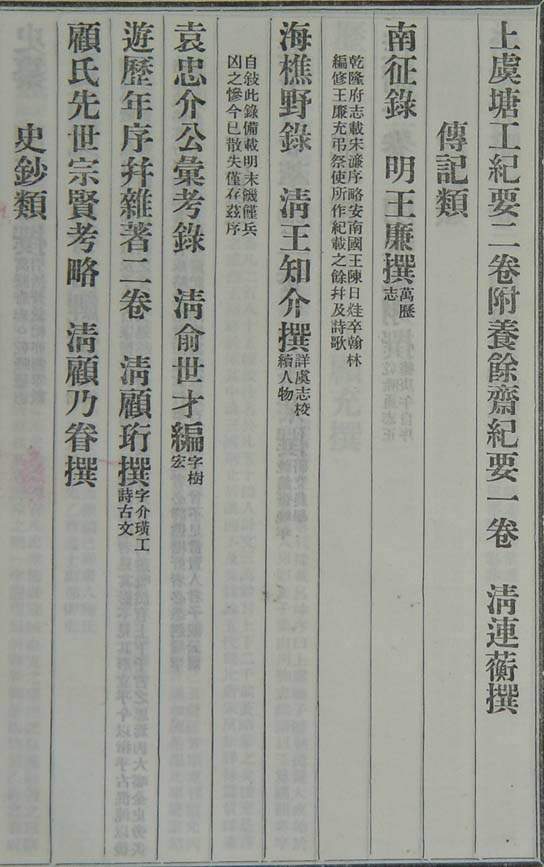 上虞塘工紀要二卷附養餘齋紀要一卷　清連蘅撰
傳記類
南征錄　明王廉撰萬歷
志
乾隆府志載宋濂序略安南國王陳日煃卒翰林
編修王廉充弔祭使所作紀載之餘幷及詩歌
海樵野錄　清王知介撰詳虞志校
續人物
自敍此錄備載明末饑饉兵
凶之慘今已散失僅存茲序
袁忠介公彙考錄　清俞世才編字樹
宏
遊歷年序幷雜著二卷　清顧珩撰字介璜工
詩古文
顧氏先世宗賢考略　清顧乃眷撰
史鈔類